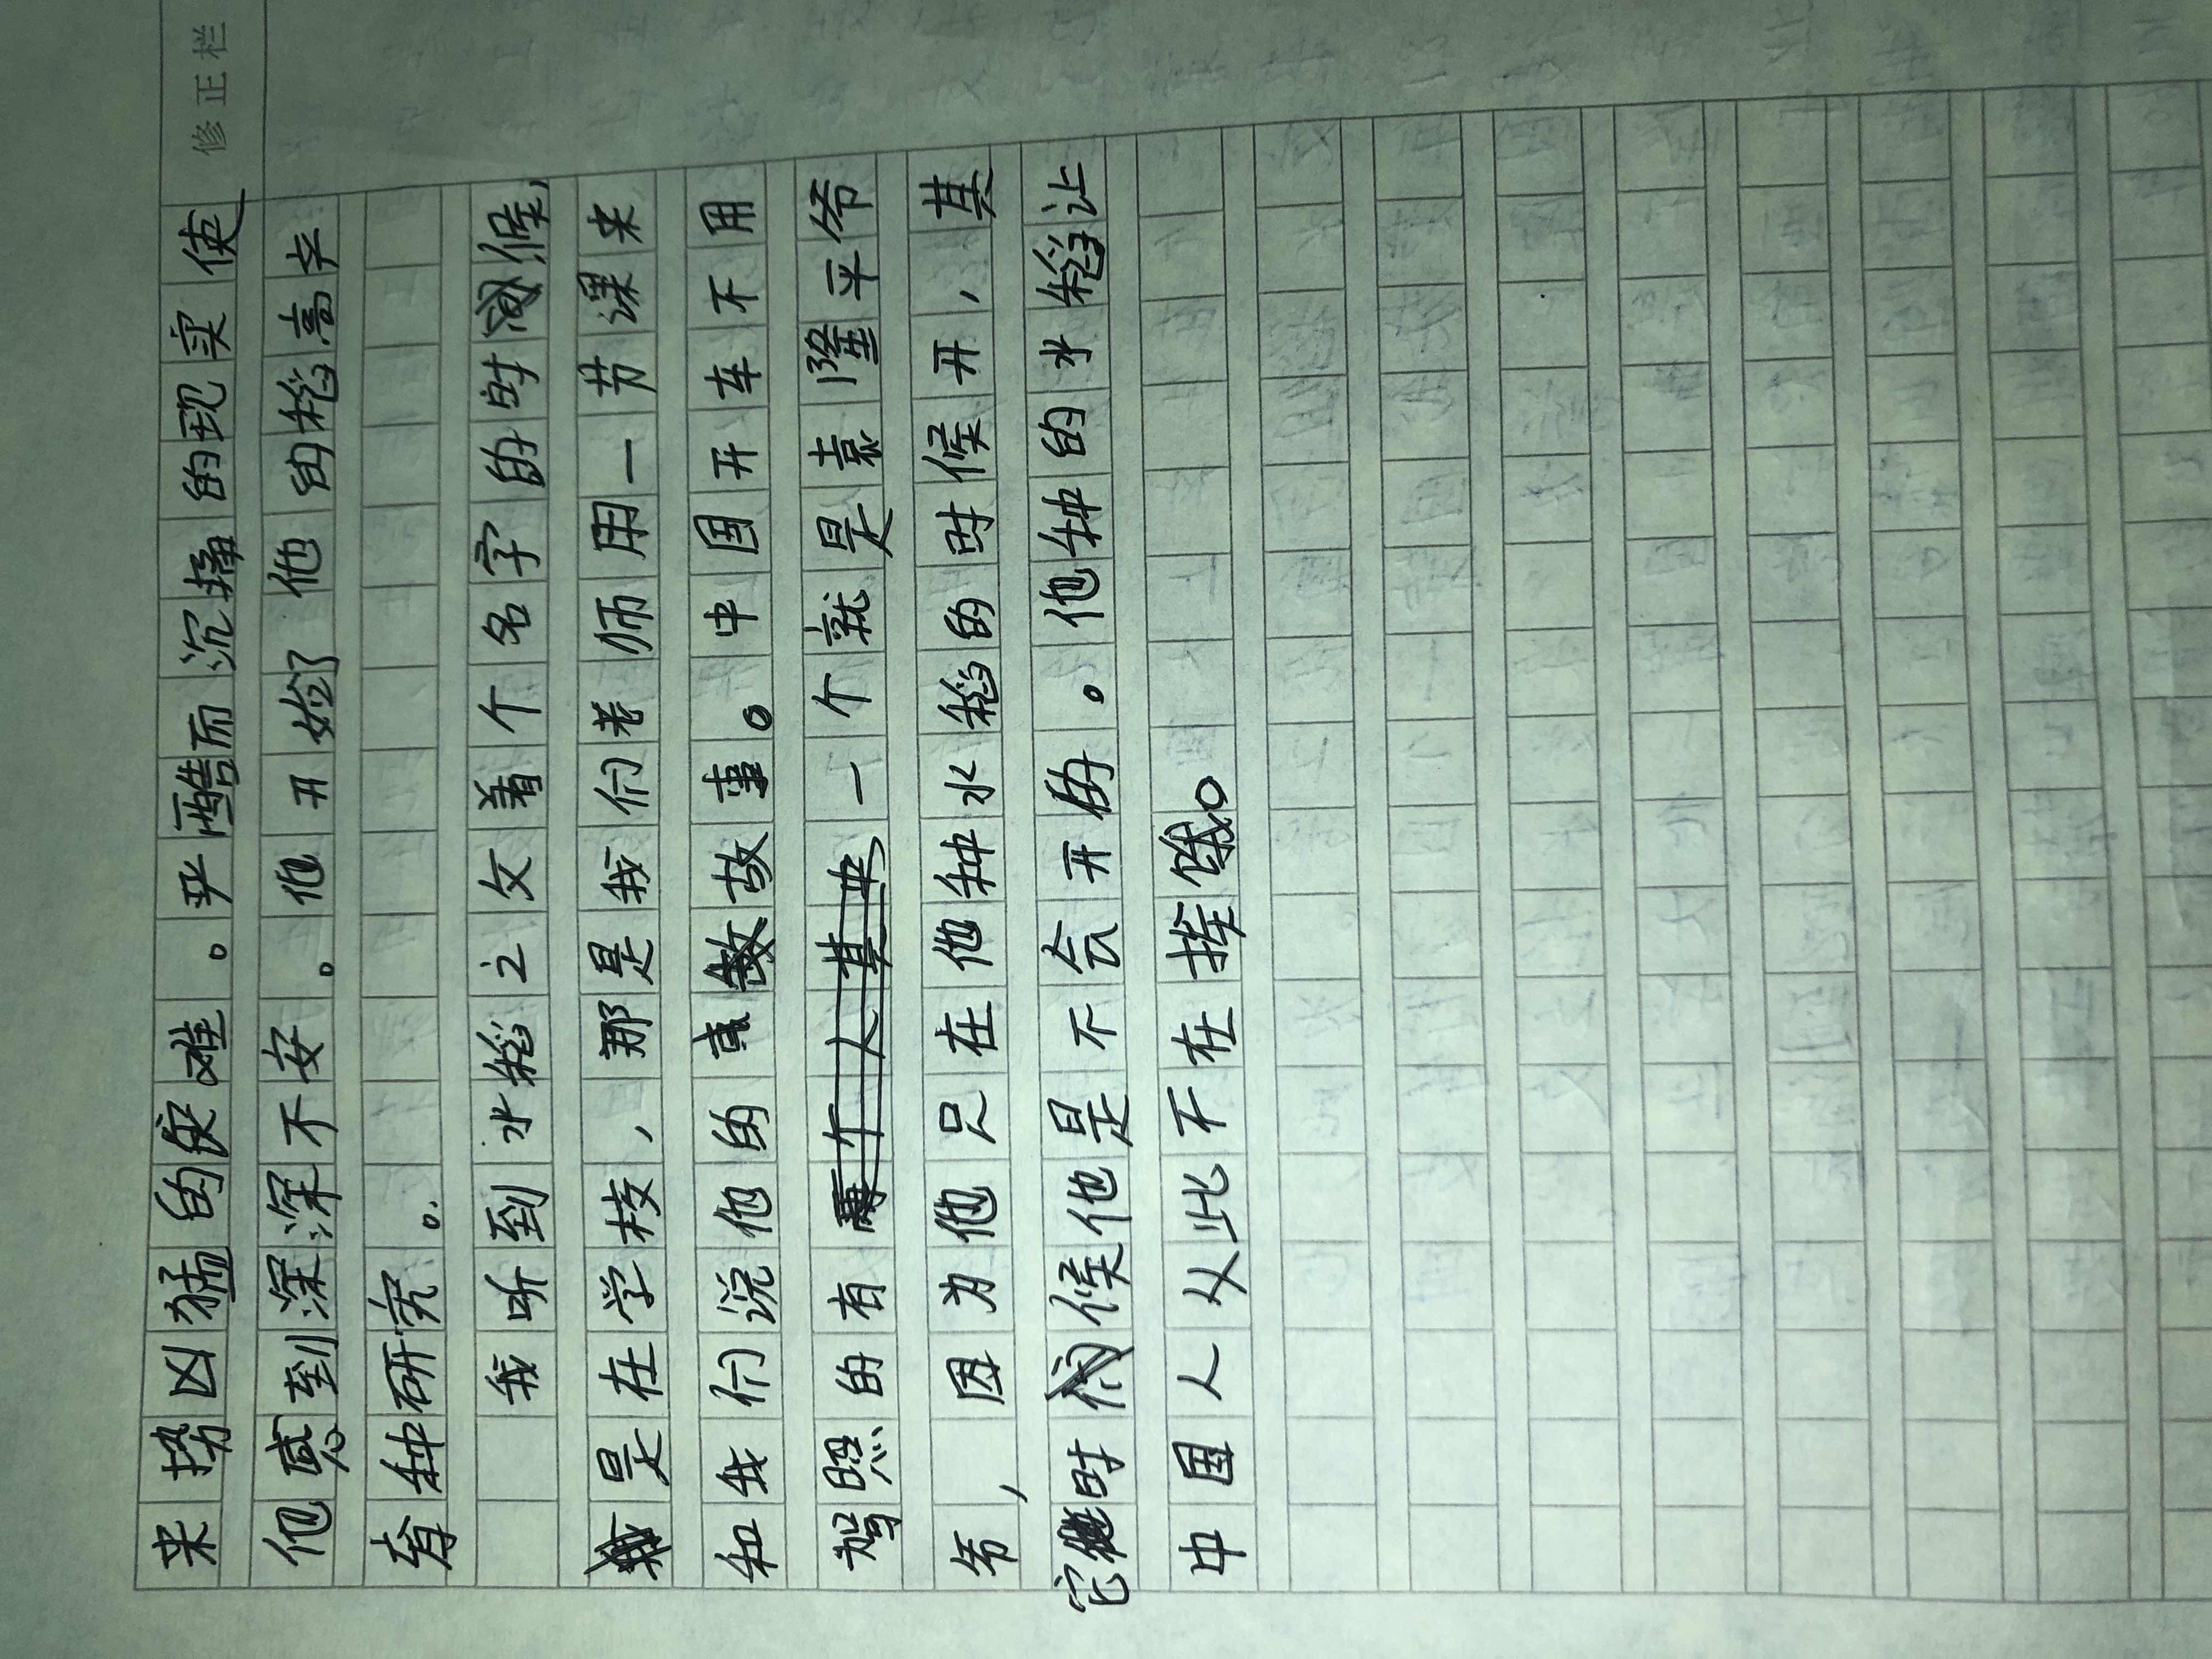 修正栏
来势凶猛的饥难。严酷而沉痛的现实使
他感到深深不安。他开始了他的稻高产
育种研究。
我听到水稻之父着个名字的时候,
是在学校,那是我们老师用一节课来
和我们说他的故事。中国开车不用
驾照的有一个就是袁隆平爷
爷,因为他只在他种水稻的时候开,其
它时候他是不会开的。他种的水稻让
中国人从此不在挨饿。